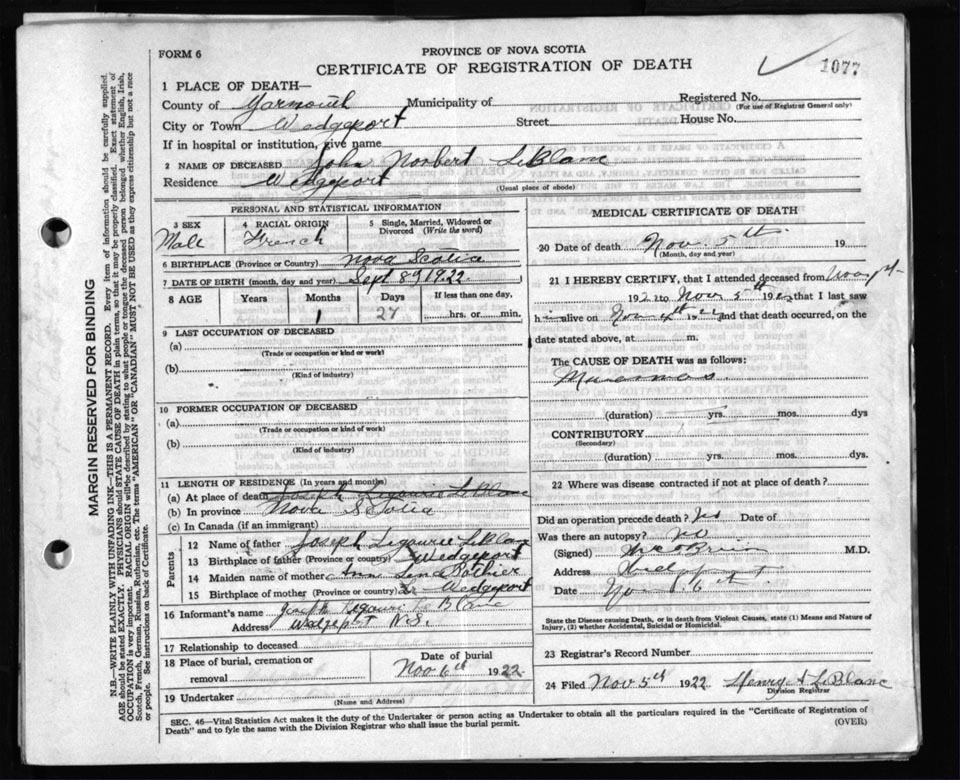 FORM 6
PROVINCE OF NOVA SCOTIA
CERTIFICATE OF REGISTRATION OF DEATH
1077
1 PLACE OF DEATH—
County of Yarmouth Municipality of Registered No.
(For use of Registrar General only)
City or Town Wedgeport Street House No.
If in hospital or institution, give name
2 NAME OF DECEASED John Norbert LeBlanc
Residence Wedgeport
(Usual place of abode)
PERSONAL AND STATISTICAL INFORMATION
3 SEX 4 RACIAL ORIGIN 5 Single, Married, Widowed or Divorced (Write the word)
Male French
6 BIRTHPLACE (Province or Country) Nova Scotia
7 DATE OF BIRTH (month, day and year) Sept 89 1922
8 AGE Years Months Days If less than one day,
1 27 hrs. or min.
9 LAST OCCUPATION OF DECEASED
(a)
(Trade or occupation or kind or work)
(b)
(Kind of industry)
10 FORMER OCCUPATION OF DECEASED
(a)
(Trade or occupation or kind of work)
(b)
(Kind of industry)
11 LENGTH OF RESIDENCE (In years and months)
(a) At place of death Joseph Ligourie LeBlanc
(b) In province Nova Scotia
(c) In Canada (if an immigrant)
Parents
12 Name of father Joseph Ligourie LeBlanc
13 Birthplace of father (Province or country) Wedgeport
14 Maiden name of mother Ann Lena Pothier
15 Birthplace of mother (Province or country) Wedgeport
16 Informant's name Joseph Ligouri LeBlanc
Address N.S.
17 Relationship to deceased
18 Place of burial, cremation or removal Date of burial
Nov 6th 1922
19 Undertaker
(Name and Address)
MEDICAL CERTIFICATE OF DEATH
20 Date of death Nov. 5th 19
(Month, day and year)
21 I HEREBY CERTIFY, that I attended deceased from
192 to Nov 5th 19 that I last saw
h alive on Nov 4th 19 22 and that death occurred, on the
date stated above, at m.
The CAUSE OF DEATH was as follows:
(duration) yrs. mos. dys
CONTRIBUTORY
(Secondary)
(duration) yrs. mos. dys.
22 Where was disease contracted if not at place of death?
Did an operation precede death? No Date of
Was there an autopsy? no
(Signed) M.D.
Address
Date Nov. 6th
State the Disease causing Death, or in death from Violent Causes, state (1) Means and Nature of Injury, (2) whether Accidental, Suicidal or Homicidal.
23 Registrar's Record Number
24 Filed Nov 5th 1922 Henry A LeBlanc
Division Registrar
SEC. 46—Vital Statistics Act makes it the duty of the Undertaker or person acting as Undertaker to obtain all the particulars required in the "Certificate of Registration of
Death" and to fyle the same with the Division Registrar who shall issue the burial permit. (OVER)
MARGIN RESERVED FOR BINDING
N.B.—WRITE PLAINLY WITH UNFADING INK—THIS IS A PERMANENT RECORD. Every item of information should be carefully supplied.
AGE should be stated EXACTLY. PHYSICIANS should STATE CAUSE OF DEATH in plain terms, so that it may be properly classified. Exact statement of
OCCUPATION is very important. RACIAL ORIGIN will be described by stating to what people or tongue the deceased person belonged whether English, Irish,
Scotch, French, German, Russian, Ruthenian, etc. The terms "AMERICAN" OR "CANADIAN" MUST NOT BE USED as they express citizenship but not a race
or people. See instructions on back of Certificate.